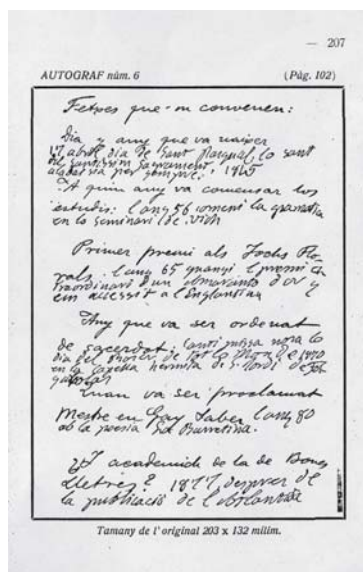 — 207
AUTOGRAF núm. 6 (Pág. 102)
Fetxes que-m convenen:
Dia y any que va naixer
17 abril dia de Sant Pasqual, lo sant
del Santíssim Sagrament, 1845
A quin any va comensar los
estudis: l'any 56 comensí la gramatica
en lo seminari de Vich
Primer premi als Jochs Flo-
rals. l'any 65 guanyí l premi ex-
traordinari d'un amaranto d'or y
un accessit a l'Englantina
Any que va ser ordenat
de sacerdot: cantí missa nova lo
dia del Roser, de tot lo Mon, de 1870
en la capella hermita de S. Jordi de
Quan va ser proclamat
Mestre en Gay Saber l'any 80
ab la poesia La Barretina.
Y academich de la de Bones
Lletres? 1877, despres de
la publicació de l'Atlantida
Tamany de l'original 203 x 132 milim.